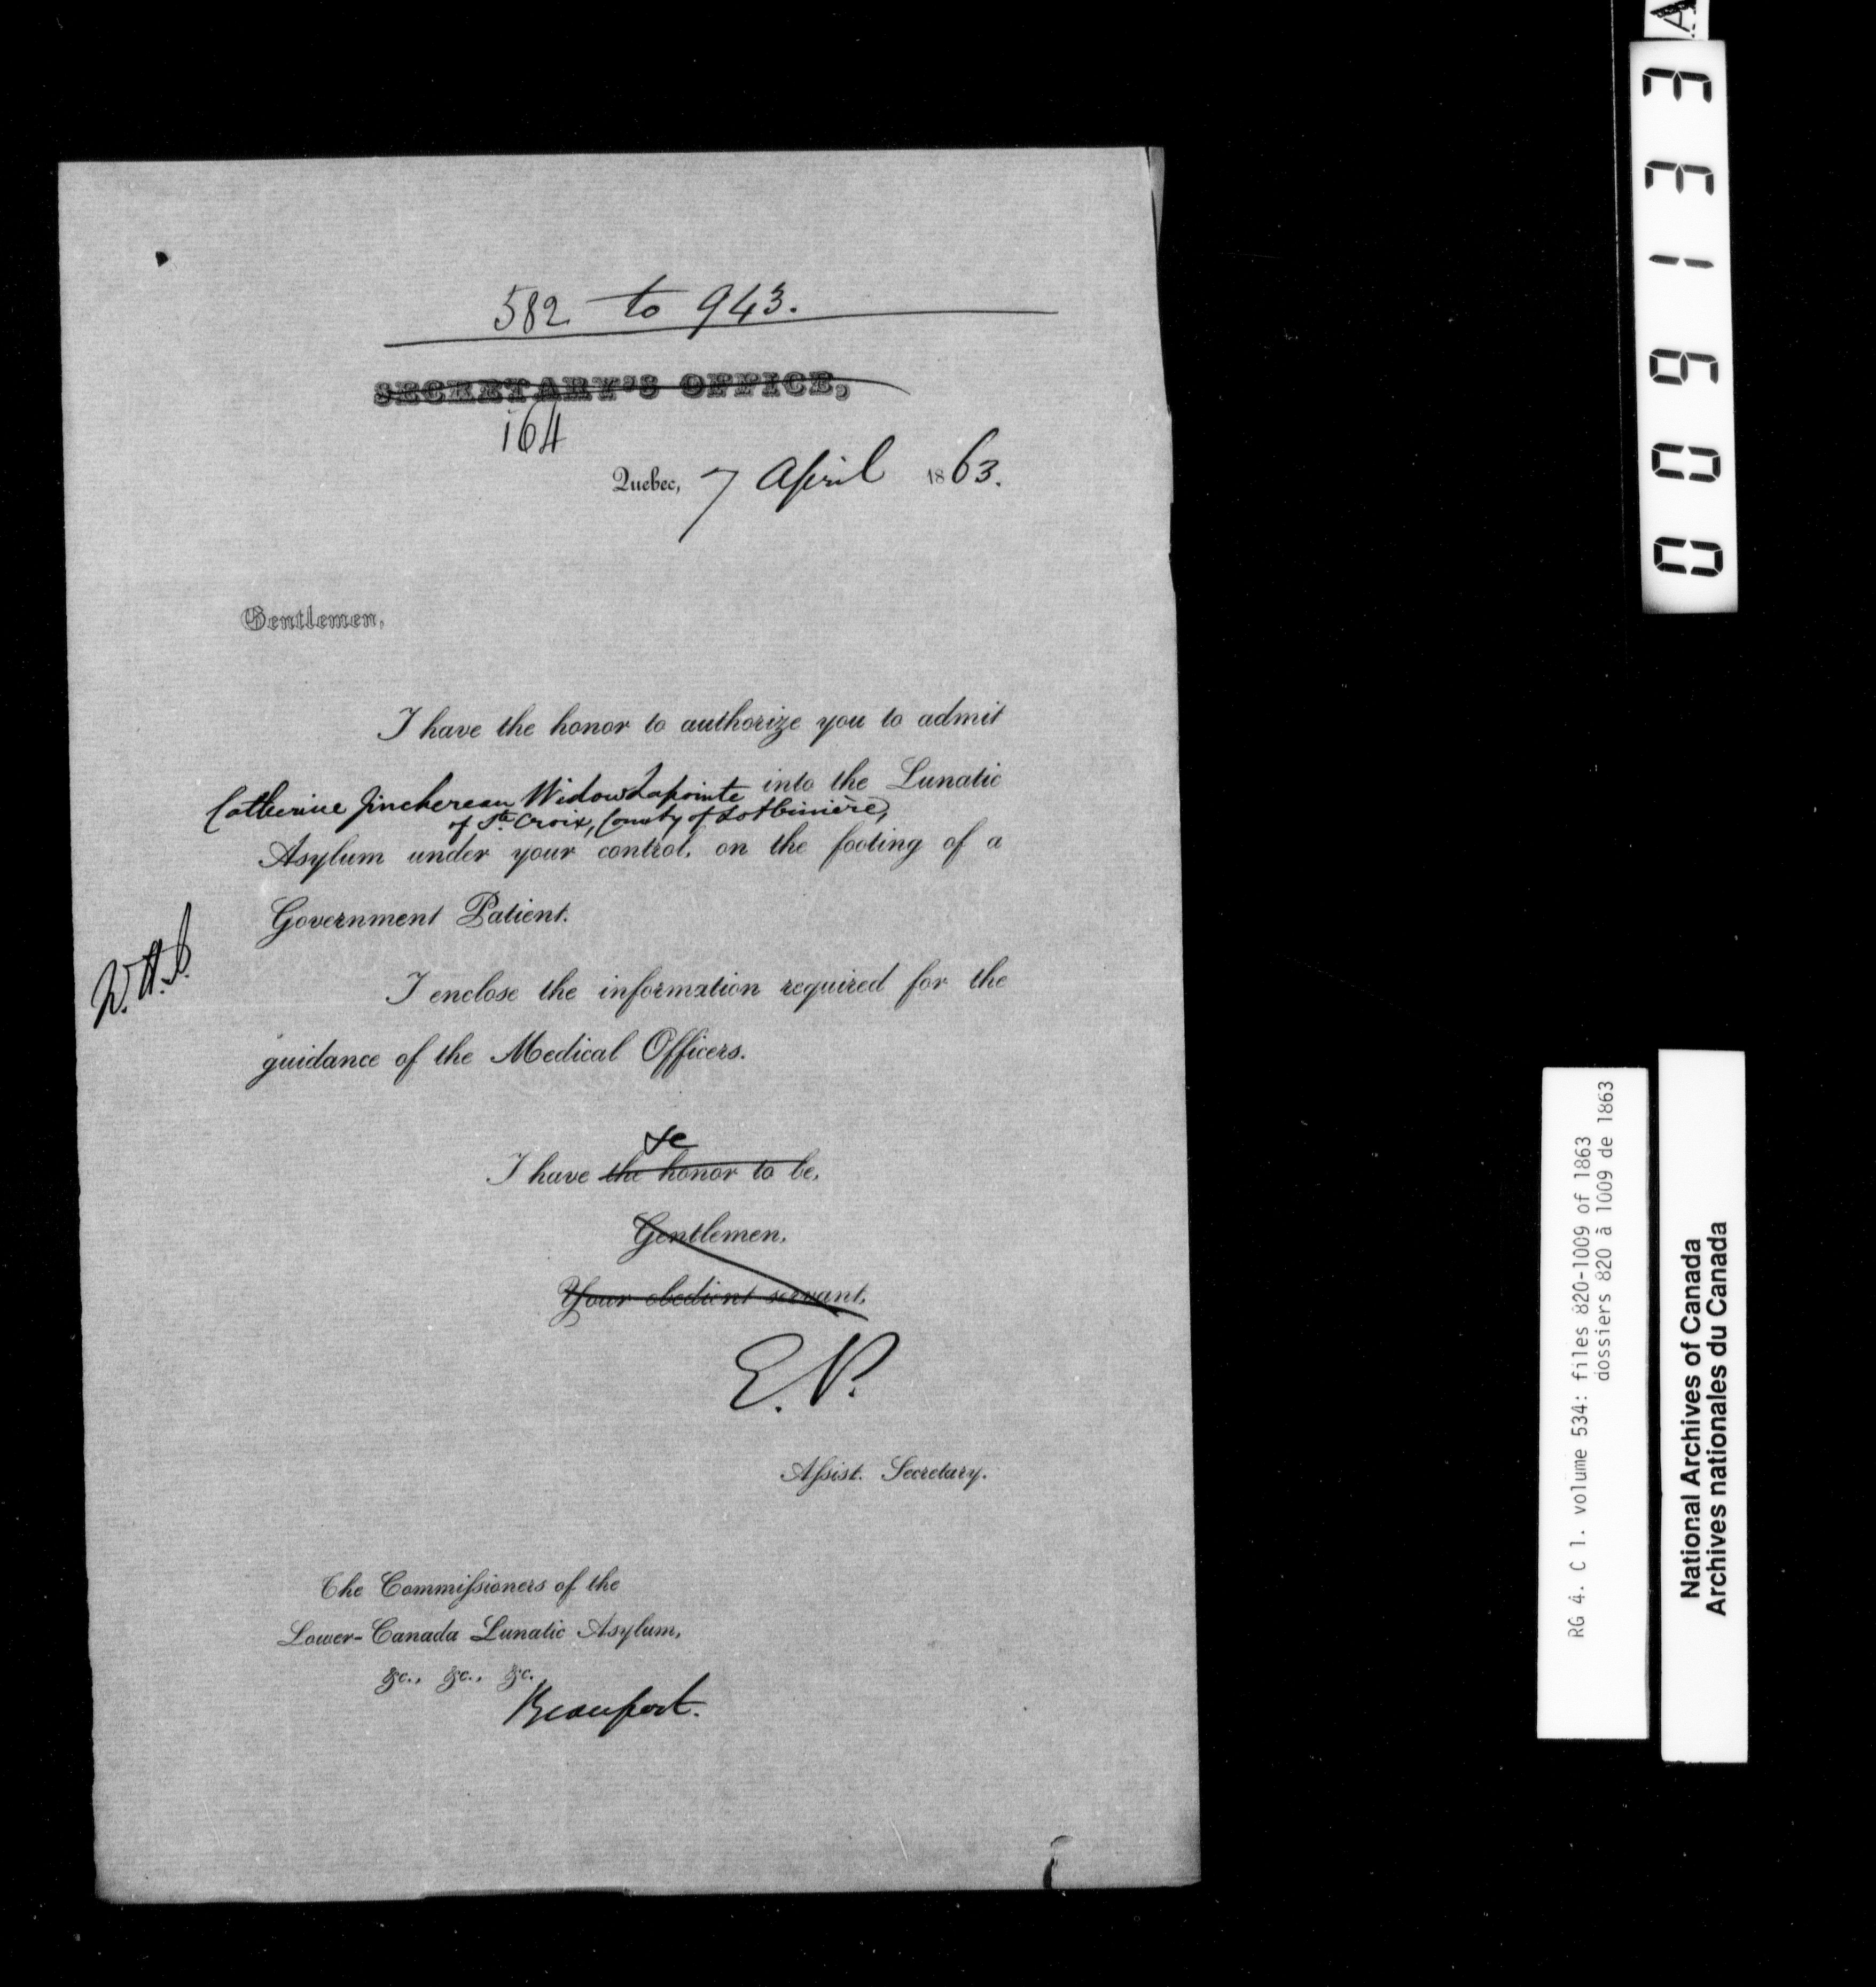 582 to 943.
SECRETARY'S OFFICE,
164
Quebec, 7 April 1863.
Gentlemen,
I have the honor to authorize you to admit
Catherine Jinchereau Widow Lapointe into the Lunatic
of Ste. Croix, County of Lotbinière,
Asylum under your control, on the footing of a
Government Patient.
W.H.J.
I enclose the information required for the
guidance of the Medical Officers.
&c
I have the honor to be,
Gentlemen,
Your obedient servant,
E.P.
Assist. Secretary.
The Commissioners of the
Lower-Canada Lunatic Asylum,
&c., &c., &c.
Beauport.
009133
A
RG 4. C 1. volume 534: files 820-1009 of 1863
dossiers 820 à 1009 de 1863
National Archives of Canada
Archives nationales du Canada